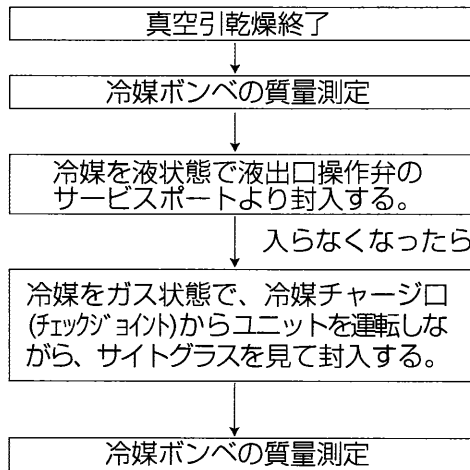 真空引乾燥終了
冷媒ボンベの質量測定
冷媒を液状態で液出口操作弁の
サービスポートより封入する。
入らなくなったら
冷媒をガス状態で、冷媒チャージ口
(ﾁｪｯｸｼﾞｮｲﾝﾄ)からユニットを運転しな
がら、サイトグラスを見て封入する。
冷媒ボンベの質量測定